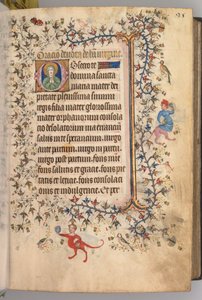 Oracio devota de bea virgine
Obsecro te
domina sancta
maria mater dei
pietate plenissima summi
regis filia mater gloriosissima
mater orphanorum consola
cio desolatorum via errancium
salus in te sperantium virgo
ante partum virgo in partu
virgo post partum fons mi&
fons salutis et gracie fons pie
tatis et leticie fons consolaci
onis et indulgencie Et per